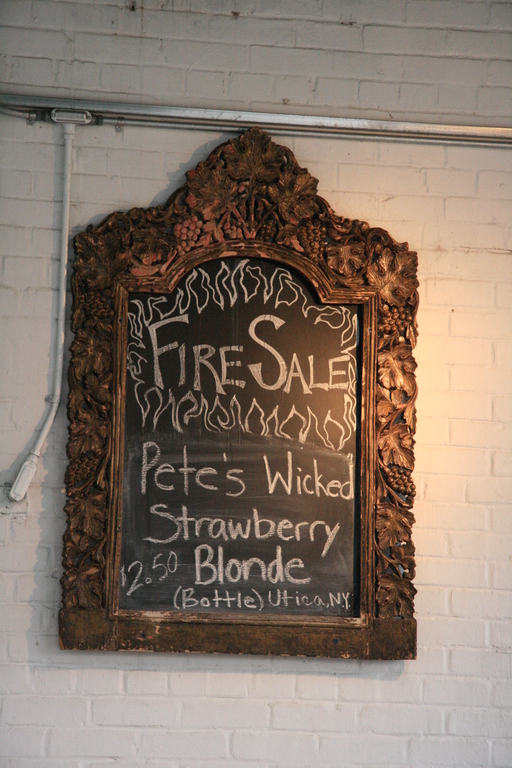 FIRE SALE
Pete's Wicked
Strawberry
$2.50 Blonde
(Bottle) Utica, N.Y.